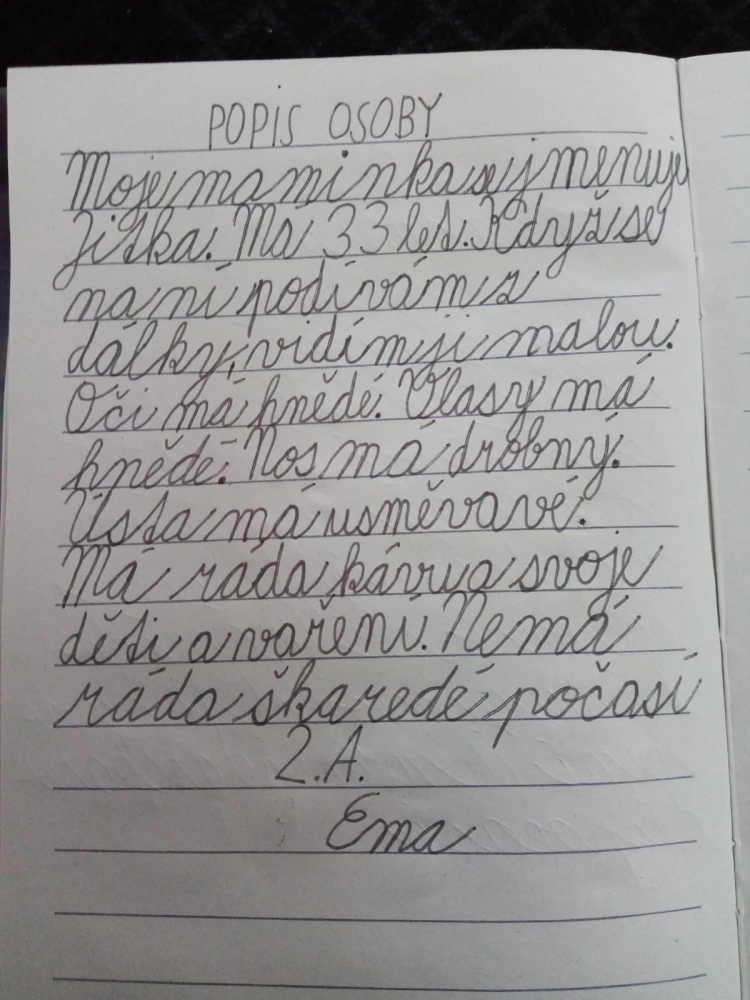 POPIS OSOBY
Moje maminka se jmenuje
Jitka. Má 33 let. Když se
na ní podívám z
dálky, vidím ji malou.
Oči má hnědé. Vlasy má
hnědé. Nos má drobný.
Ústa má usměvavé.
Má ráda kávu a svoje
děti a vaření. Nemá
ráda škaredé počasí
2.A.
Ema